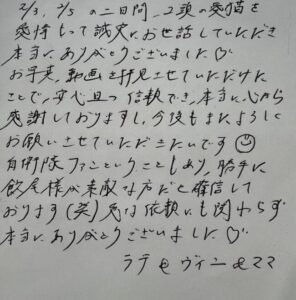 2/3、2/5 の二日間、2頭の愛猫を
愛情もって誠実にお世話していただき
本当にありがとうございました♡
お手紙、動画を拝見させていただけた
ことで、安心且つ信頼でき、本当に心から
感謝しておりますし、今後もまたよろしく
お願いさせていただきたいです☺
自衛隊ファンということもあり、勝手に
飯尾様が素敵な方だと確信して
おります(笑) 急な依頼にも関わらず
本当にありがとうございました♡
ラテ & ヴィン & ママ